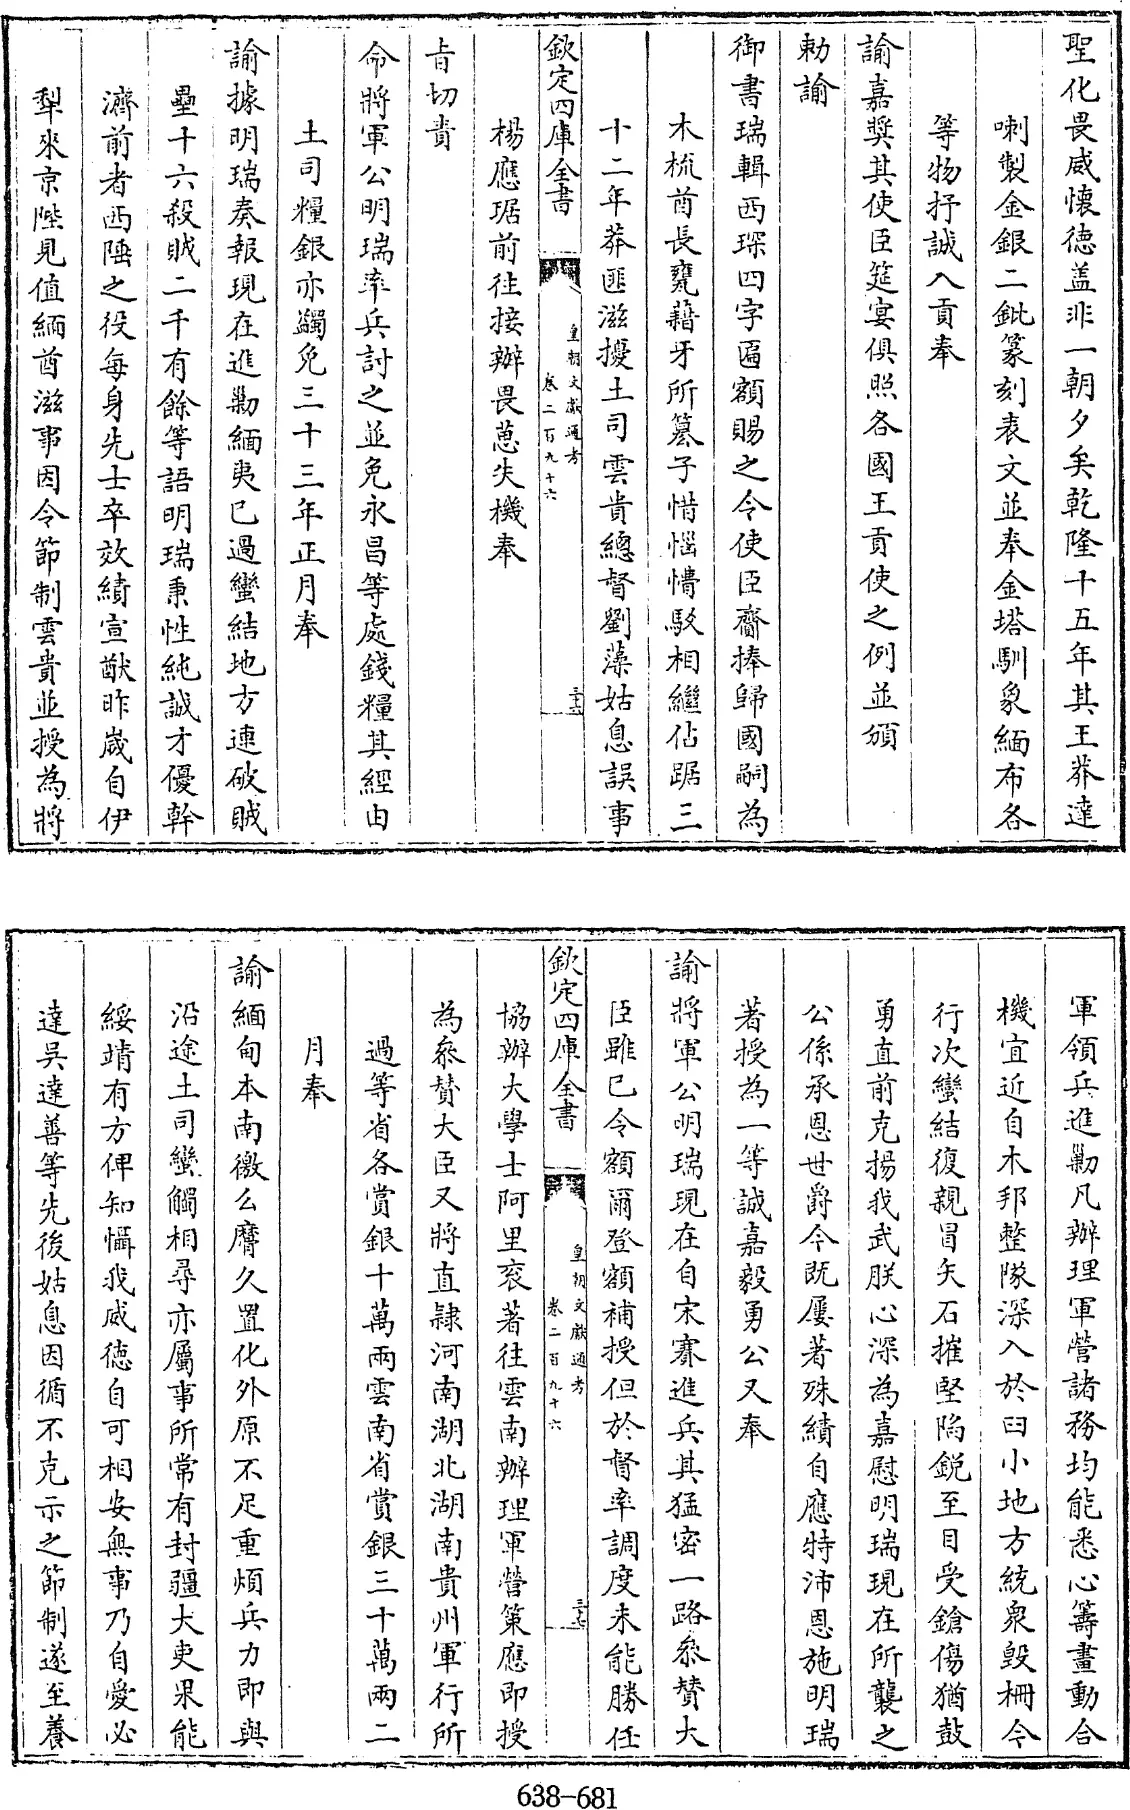 聖化畏威懷德蓋非一朝夕矣乾隆十五年其王莽達
喇製金銀二鈚篆刻表文並奉金塔馴象緬布各
等物抒誠入貢奉
諭嘉獎其使臣筵宴俱照各國王貢使之例並頒
勅諭
御書瑞輯西琛四字匾額賜之令使臣齎捧歸國嗣為
木梳酋長甕藉牙所簒子懵惱懵駁相繼佔踞三
十二年莽匪滋擾土司雲貴總督劉藻姑息誤事
欽定四庫全書
皇朝文獻通考
卷二百九十六
三十六
楊應琚前往接辦畏葸失機奉
旨切責
命將軍公明瑞率兵討之並免永昌等處錢糧其經由
土司糧銀亦蠲免三十三年正月奉
諭據明瑞奏報現在進勦緬夷已過蠻結地方連破賊
壘十六殺賊二千有餘等語明瑞秉性純誠才優幹
濟前者西陲之役每身先士卒效績宣猷昨歲自伊
犂來京陛見值緬酋滋事因令節制雲貴並授為將
軍領兵進勦凡辦理軍營諸務均能悉心籌畫動合
機宜近自木邦整隊深入於臼小地方統衆毀柵今
行次蠻結復親冒矢石摧堅陷銳至目受鎗傷猶鼓
勇直前克揚我武朕心深為嘉慰明瑞現在所襲之
公係承恩世爵今既屢著殊績自應特沛恩施明瑞
著授為一等誠嘉毅勇公又奉
諭將軍公明瑞現在自宋賽進兵其猛密一路叅贊大
臣雖已令額爾登額補授但於督率調度未能勝任
欽定四庫全書
皇朝文獻通考
卷二百九十六
三十七
協辦大學士阿里衮著往雲南辦理軍營策應即授
為叅贊大臣又將直隸河南湖北湖南貴州軍行所
過等省各賞銀十萬兩雲南省賞銀三十萬兩二
月奉
諭緬甸本南徼么麽久置化外原不足重煩兵力即與
沿途土司蠻觸相尋亦屬事所常有封疆大吏果能
綏靖有方俾知懾我威德自可相安無事乃自愛必
達吳達善等先後姑息因循不克示之節制遂至養
638-681